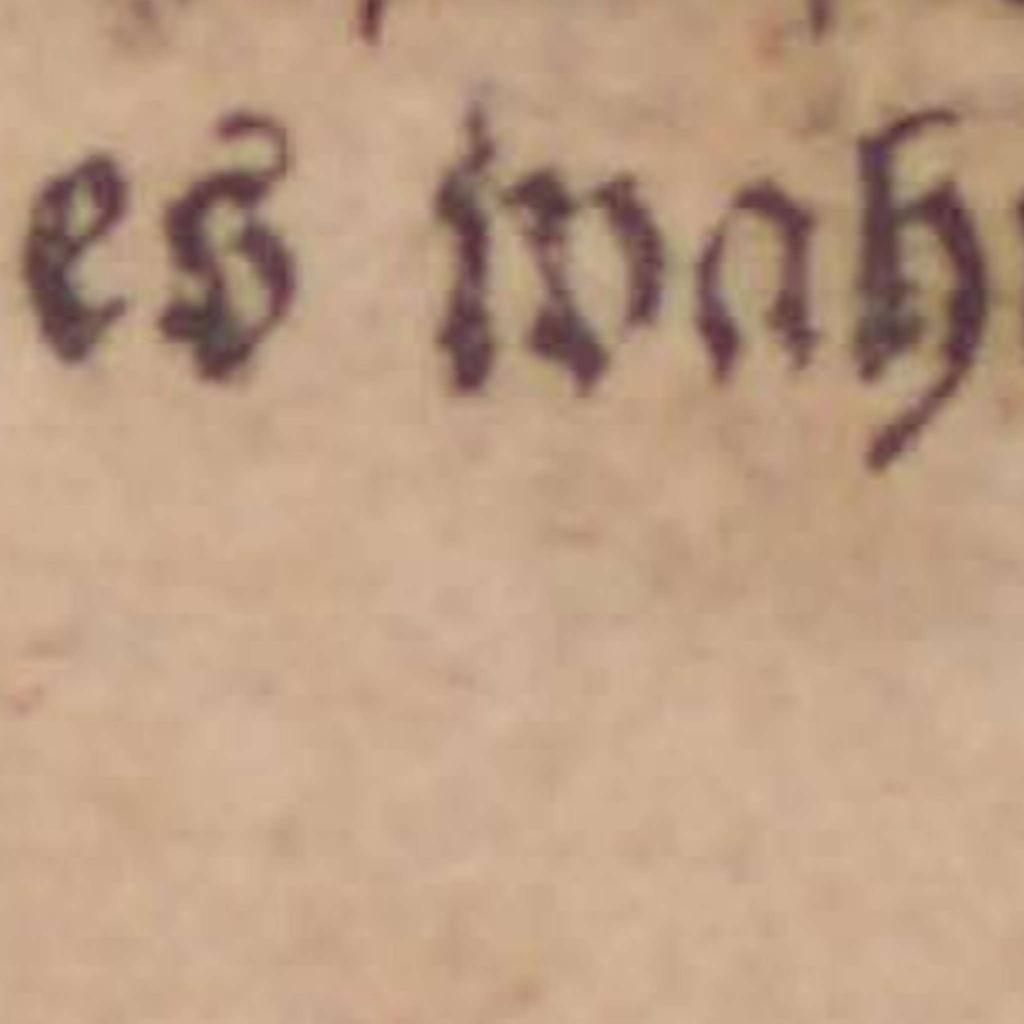 es wah